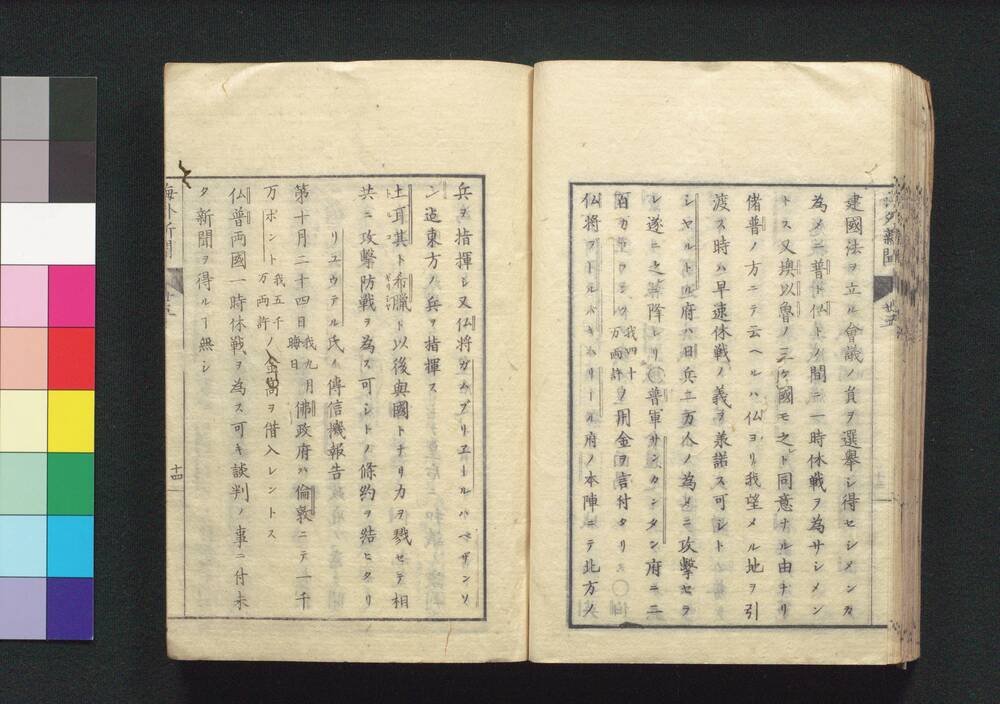 建國法ヲ立ル會議ノ員ヲ選舉シ得セシメンカ
為メニ普ト仏トノ間ニ一時休戦ヲ為サシメン
トス又墺以魯ノ三ケ國モ之ト同意ナル由ナリ
偖普ノ方ニテ云ヘルハ仏ヨリ我望メル地ヲ引
渡ス時ハ早速休戦ノ義ヲ承諾ス可シト
シヤルトル府ハ日兵二万人ノ為メニ攻撃セラ
レ遂ニ之降レリ○普軍サンカンタン府ニ二
百万 我四十万両許ノ用金ヲ言付タリ○
仏将 府ノ本陣ニテ北方ノ
兵ヲ指揮シ又仏将ガムブリエールハベザンソ
ン造東方ノ兵ヲ指揮ス
土耳其ト希臘ト以後與國トナリ力ヲ戮セテ相
トルコ ギリシヤ
共ニ攻撃防戦ヲ為ス可シトノ條約ヲ結ヒタリ
リユウテル氏イ傳信機報告
第十月二十四日 我九月晦日 佛政府ハ倫敦ニテ一千
万ポント 我五千万両許 ノ金高ヲ借入レントス
仏普両國一時休戦ヲ為ス可キ談判ノ事ニ付未
タ新聞ヲ得ルヿ無シ
海外新聞
十四